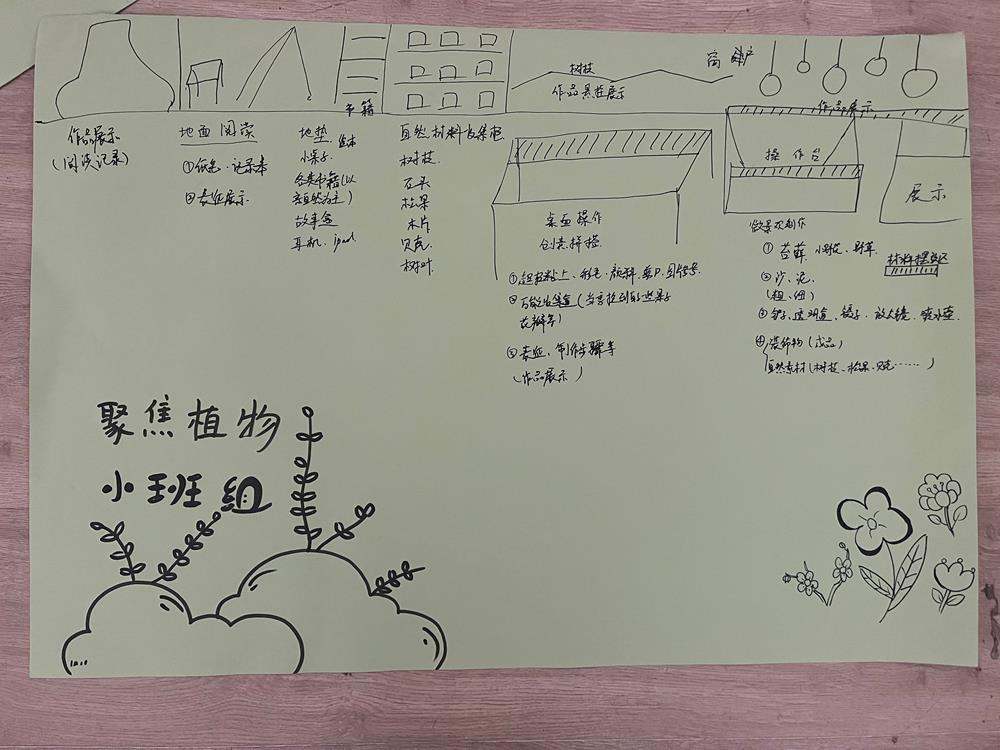 书籍
树枝
作品悬挂展示
窗户
作品展示
作品展示
(阅读记录)
地面阅读
①纸笔、记录本
②表征展示
地垫
绘本
小桌子
各类书籍(以
亲自然为主)
故事盒
耳机、ipad
自然材料收集柜
树枝
石头
松果
木片
贝壳
树叶
桌面操作
创意拼搭
①超轻粘土、彩毛、颜料
②万能收集盒(当季找到的坚果子
花瓣等)
③表征、制作步骤等
(作品展示)
操作台
做景观制作
①苔藓、小野花、野草
②沙、泥、
(粗、细)
③铲子、透明盒、镊子、放大镜、喷水壶
④装饰物(成品)
自然素材(树枝、松果、贝壳……)
展示
材料摆放区
聚焦植物
小班组